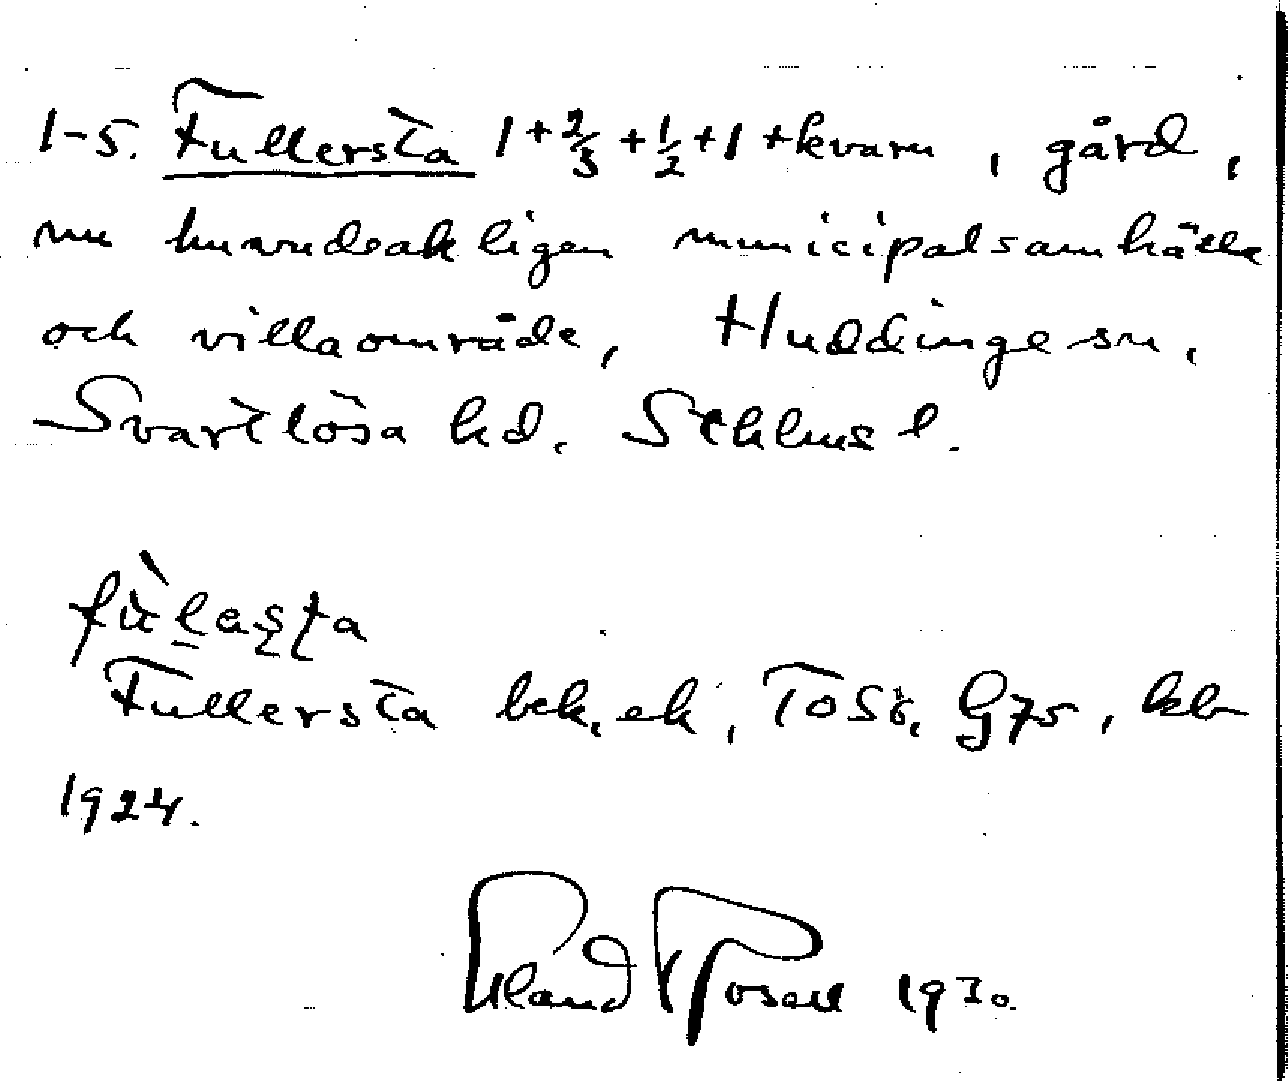 1-5. Fullersta 1+2/3+1/2+1+kvarn, gård,
nu huvudsakligen municipalsamhälle
och villaområde, Huddinge sn,
Svartlösa hd. Sthlms l.
fùḷasta
Fullersta bek, ek, ToSö. G75, bl
1924.
Erland Rosell 1970.